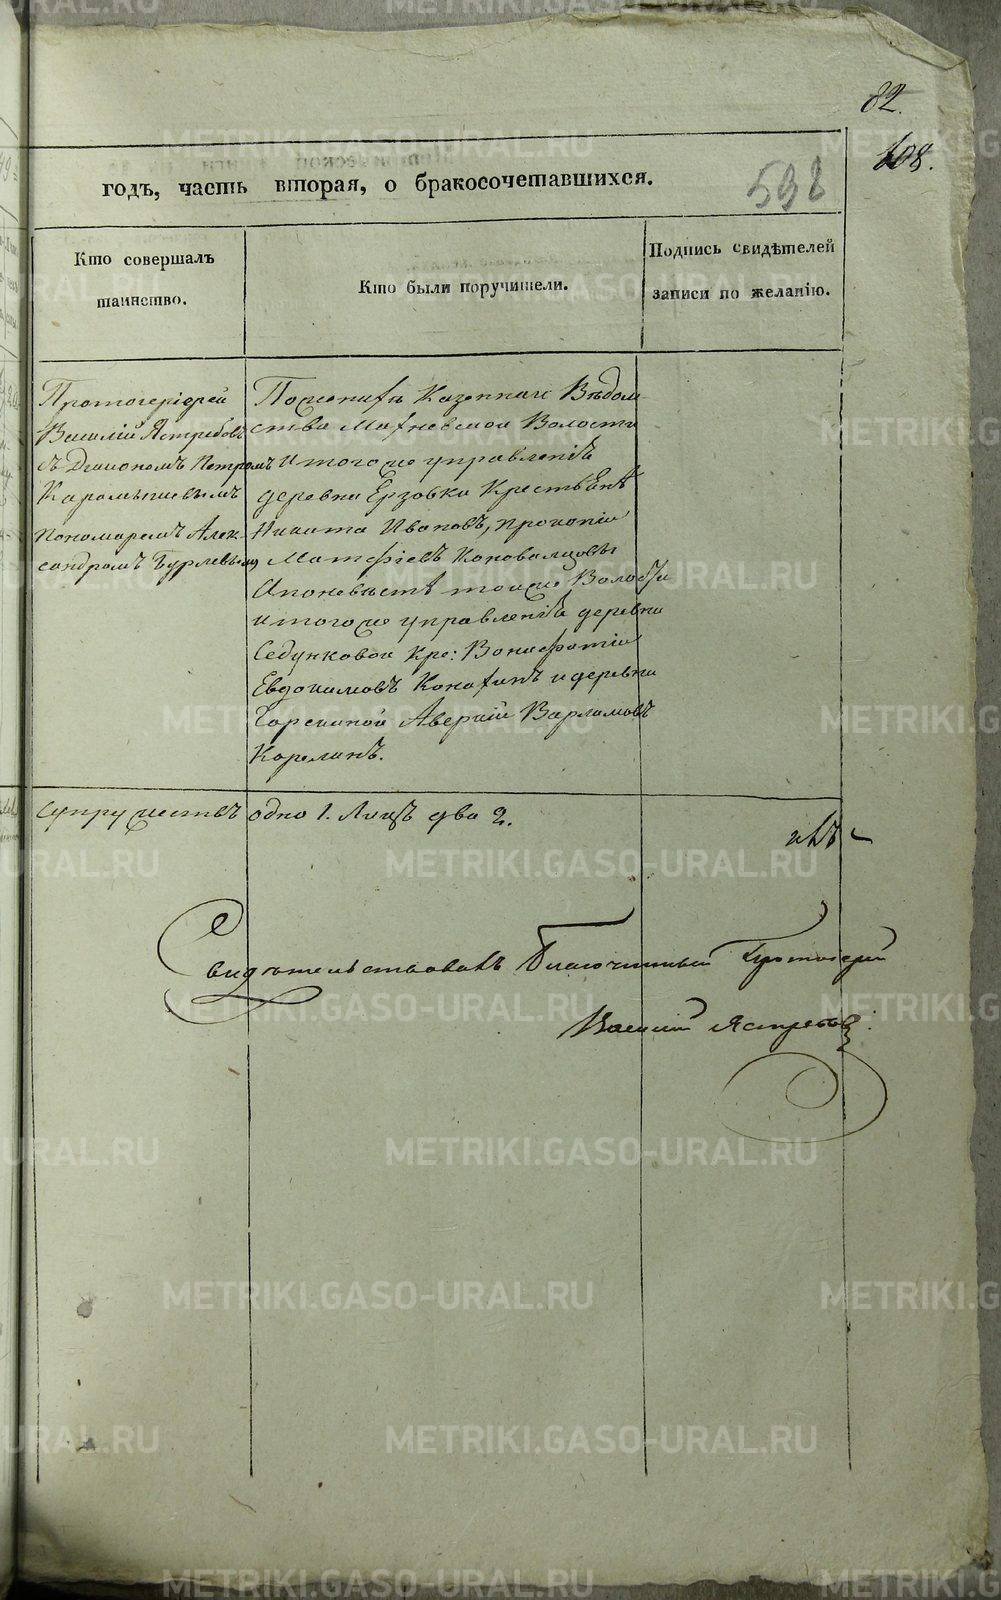 82.
108.
годъ, часть вторая, о бракосочетавшихся.
598
Кто совершалъ
таинство.
Кто были поручители.
Подпись свидѣтелей
записи по желанію.
Протогеріерей
Василій Ястребовъ
съ Діакономъ Петромъ
Карамышевымъ
пономаремъ Алек-
сандромъ Бурлевымъ
По женихѣ Казеннаго Вѣдом-
ства Махневской Волости
итогоже управленія
деревни Ерзовки Крестьянѣ
Никита Ивановъ, Прокопій
Матфіевъ Коноваловы
Апоневѣстѣ тойже Волости
итогоже управленія деревни
Седунковой Кре: Вонифатій
Евдокимовъ Конахинъ и деревни
Аверкій Варламовъ
Карелинъ.
супружествъ одно 1. Лицъ два 2.
Свидѣтельствовалъ Благочинный Протоіерей
Василій Ястребовъ
METRIKI.GASO-URAL.RU